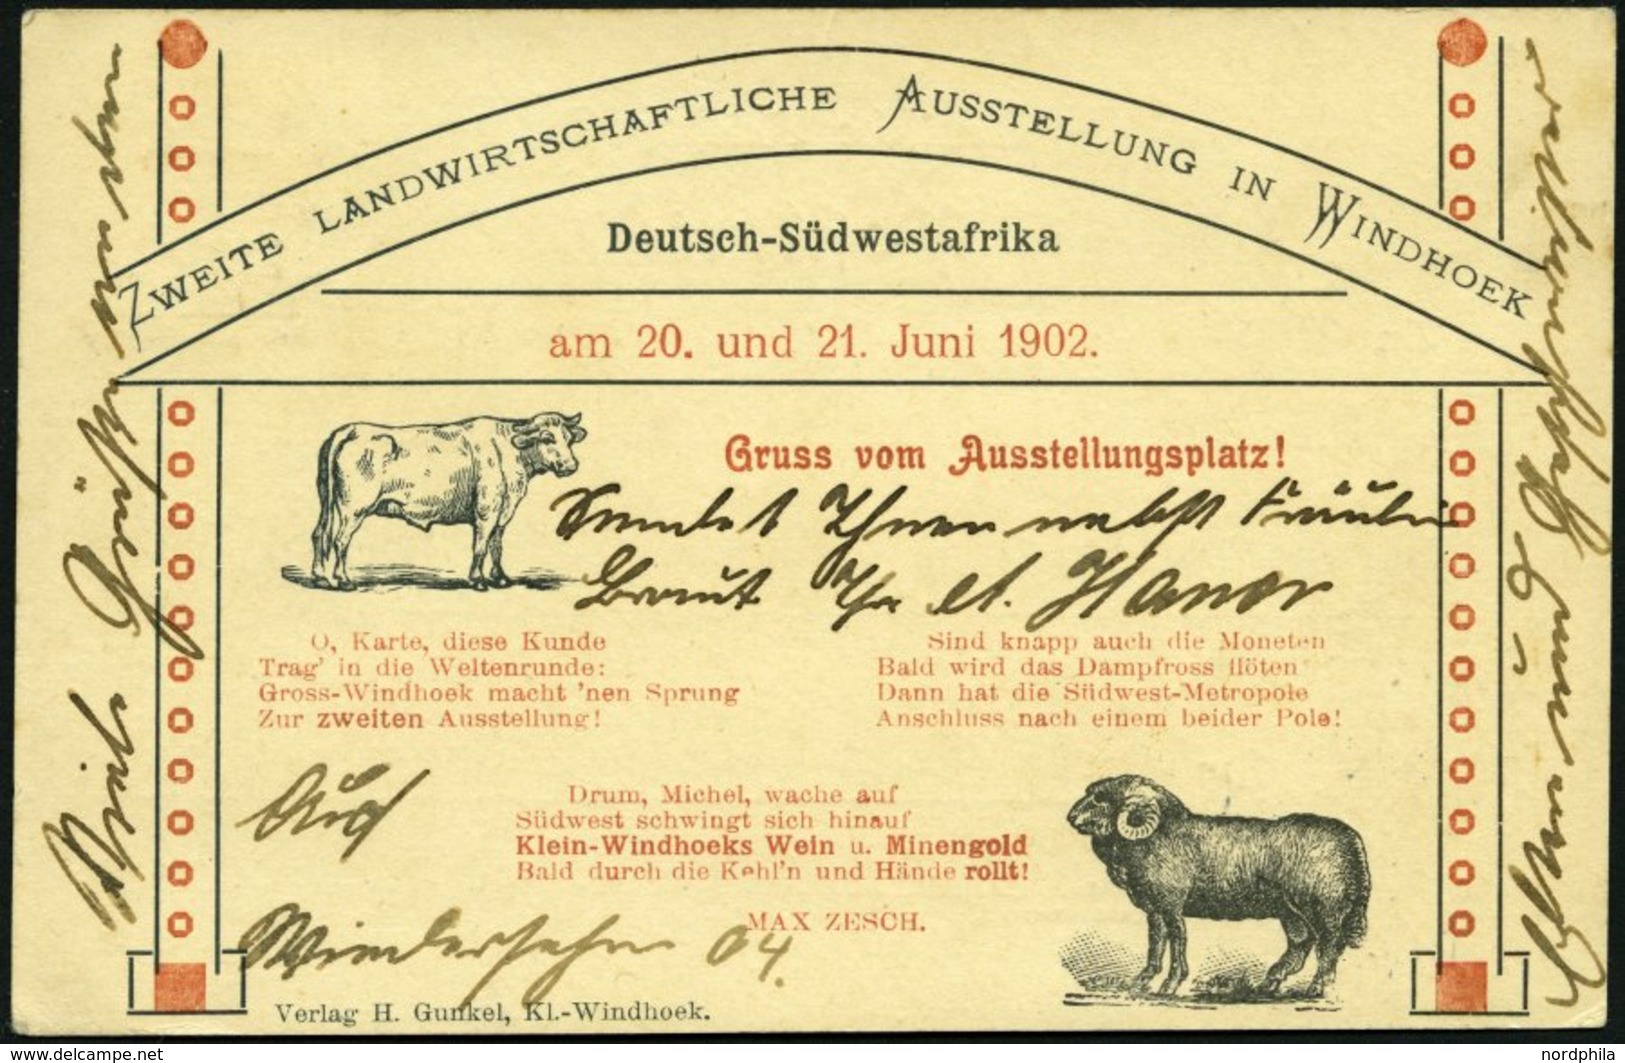 ZWEITE LANDWIRTSCHAFTLICHE AUSSTELLUNG IN WINDHOEK
Deutsch-Südwestafrika
am 20. und 21. Juni 1902.
Gruss vom Ausstellungsplatz!
Sendet Ihnen nebst Fräulein
Braut Ihr
O, Karte, diese Kunde
Trag' in die Weltenrunde:
Gross-Windhoek macht 'nen Sprung
Zur zweiten Ausstellung!
Sind knapp auch die Moneten
Bald wird das Dampfross flöten
Dann hat die Südwest-Metropole
Anschluss nach einem beider Pole!
Auf
Drum, Michel, wache auf
Südwest schwingt sich hinauf
Klein-Windhoeks Wein u. Minengold
Bald durch die Kehl'n und Hände rollt!
MAX ZESCH.
Wiedersehn 04.
Verlag H. Gunkel, Kl.-Windhoek.
www.delcampe.net
nordphila